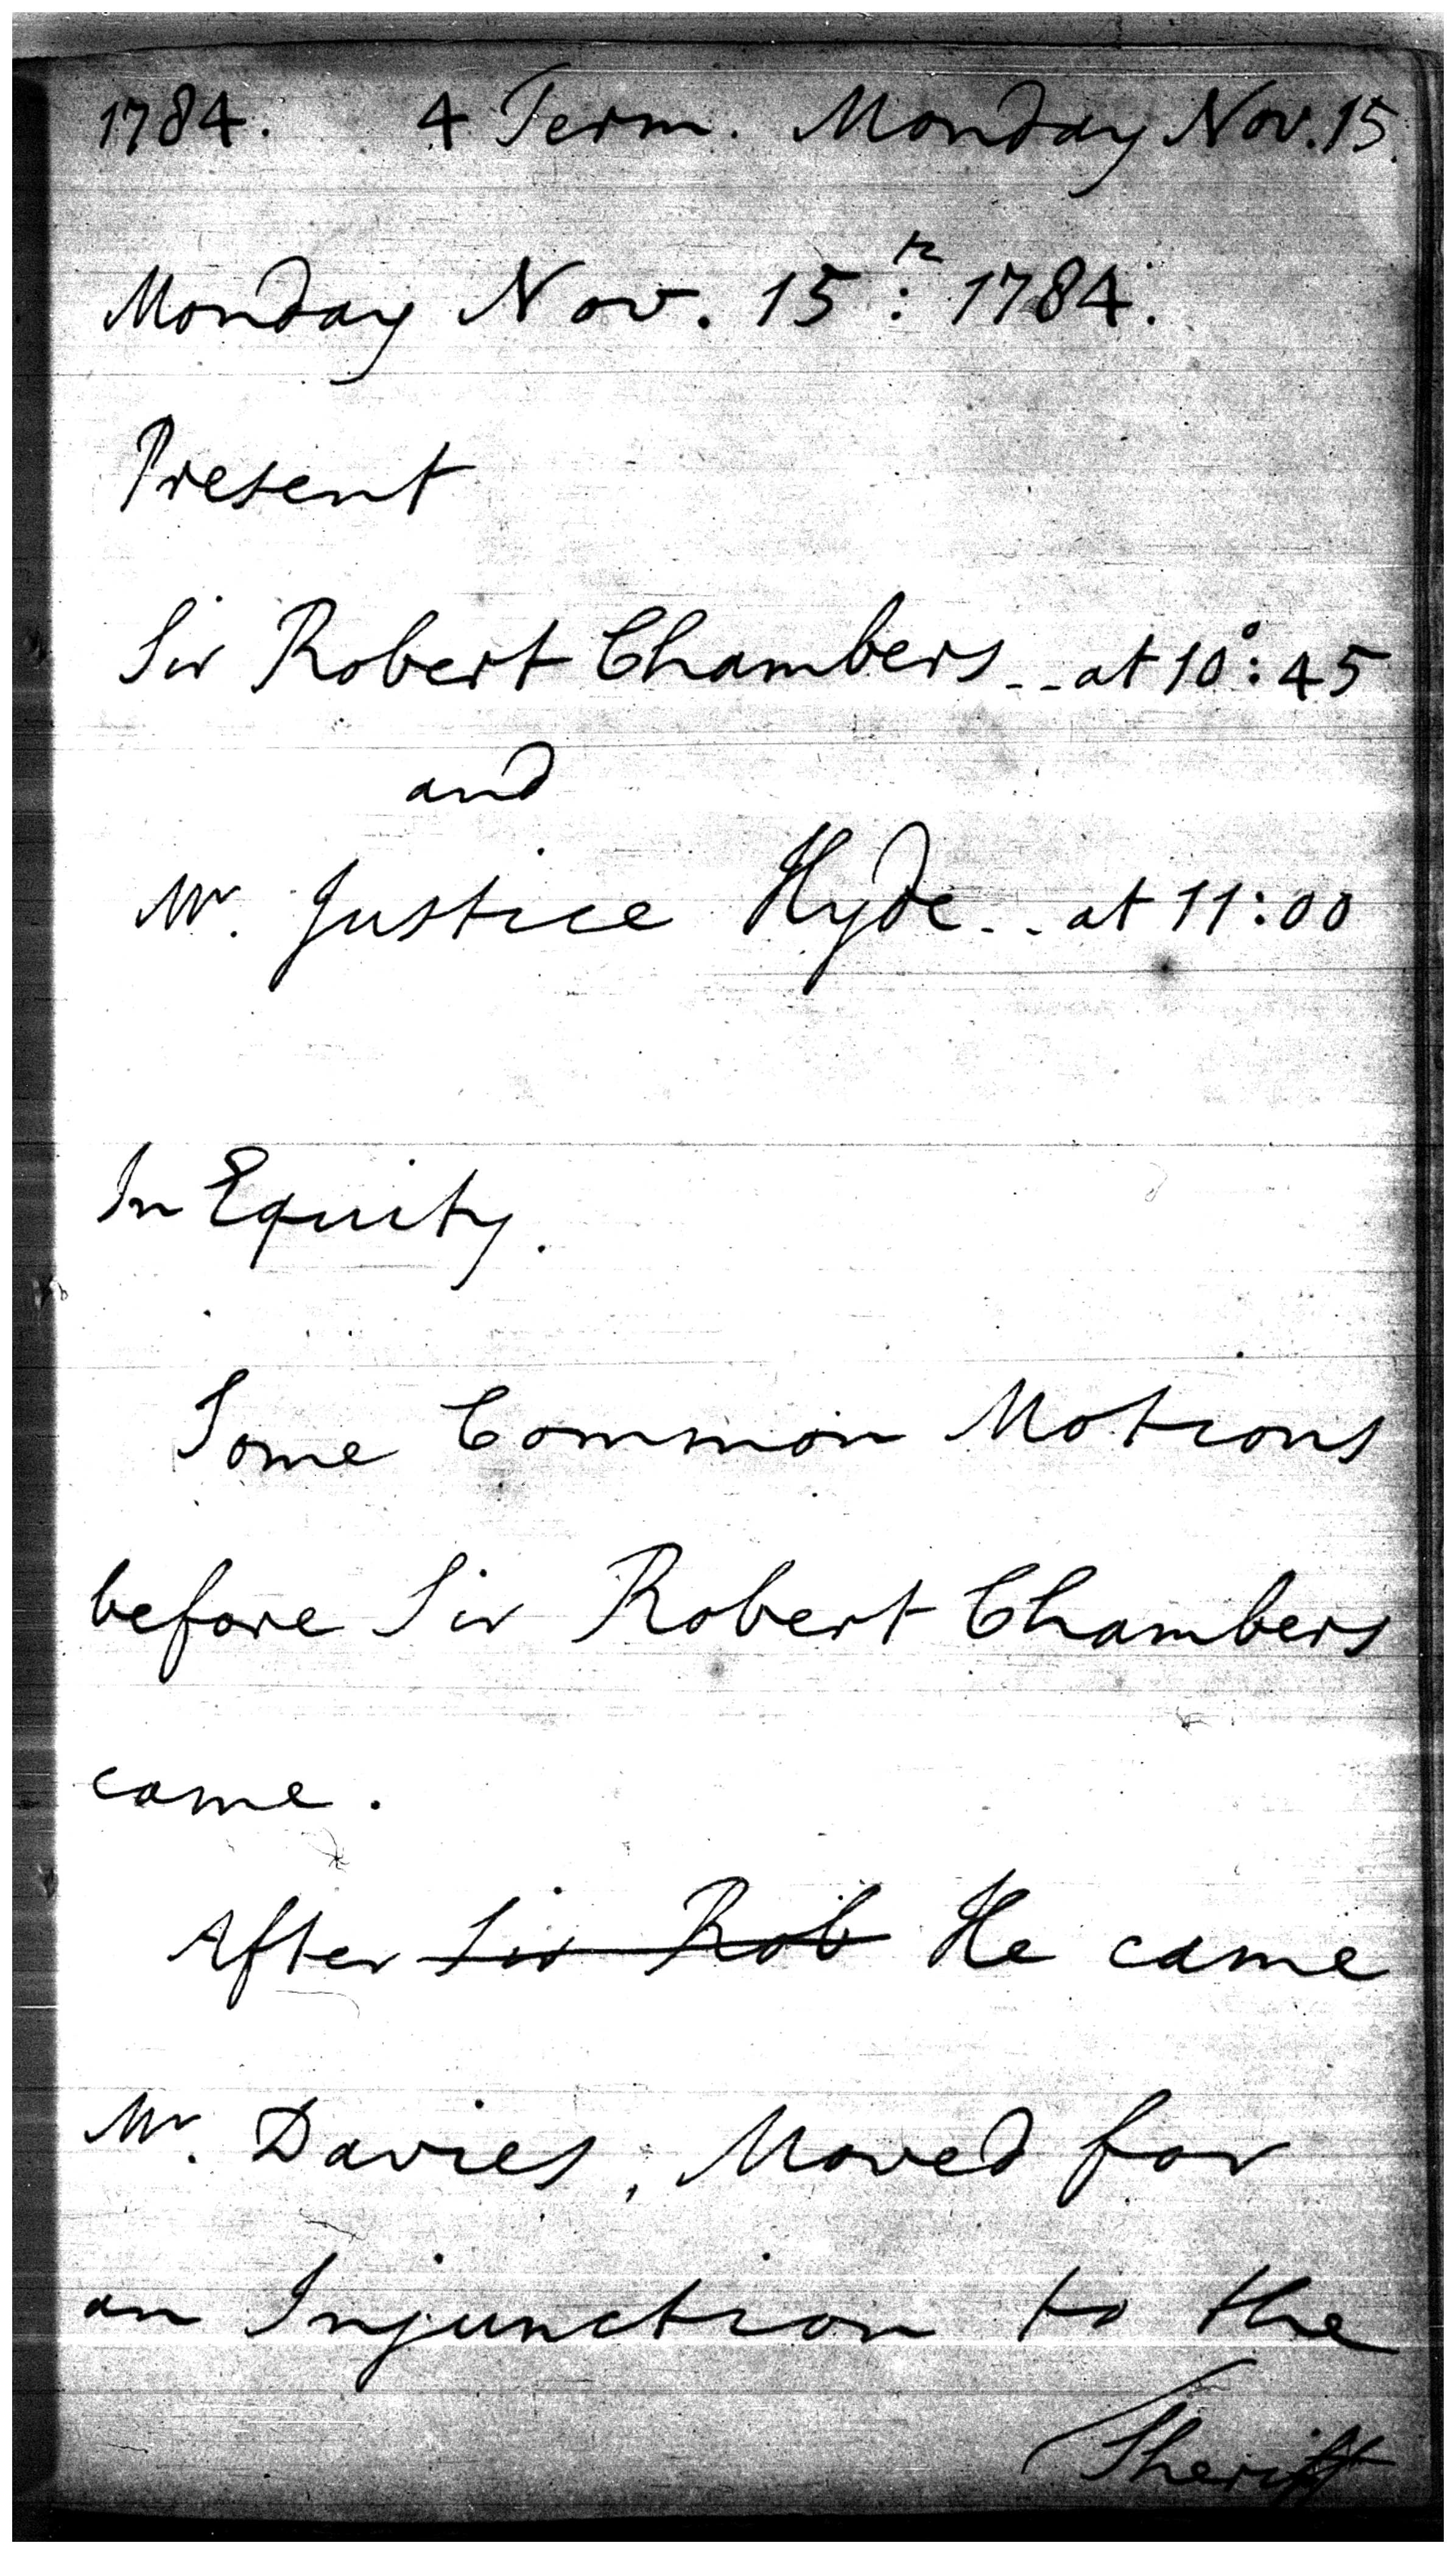 1784. 4 Term. Monday Nov. 15.
Monday Nov. 15th: 1784.
Present
Sir Robert Chambers -- at 10°: 45
and
Mr. Justice Hyde -- at 11:00
In Equity.
Some Common Motions
before Sir Robert Chambers
came.
After Sir Rob He came
Mr. Davies, Moved for
an Injunction to the
Sheriff